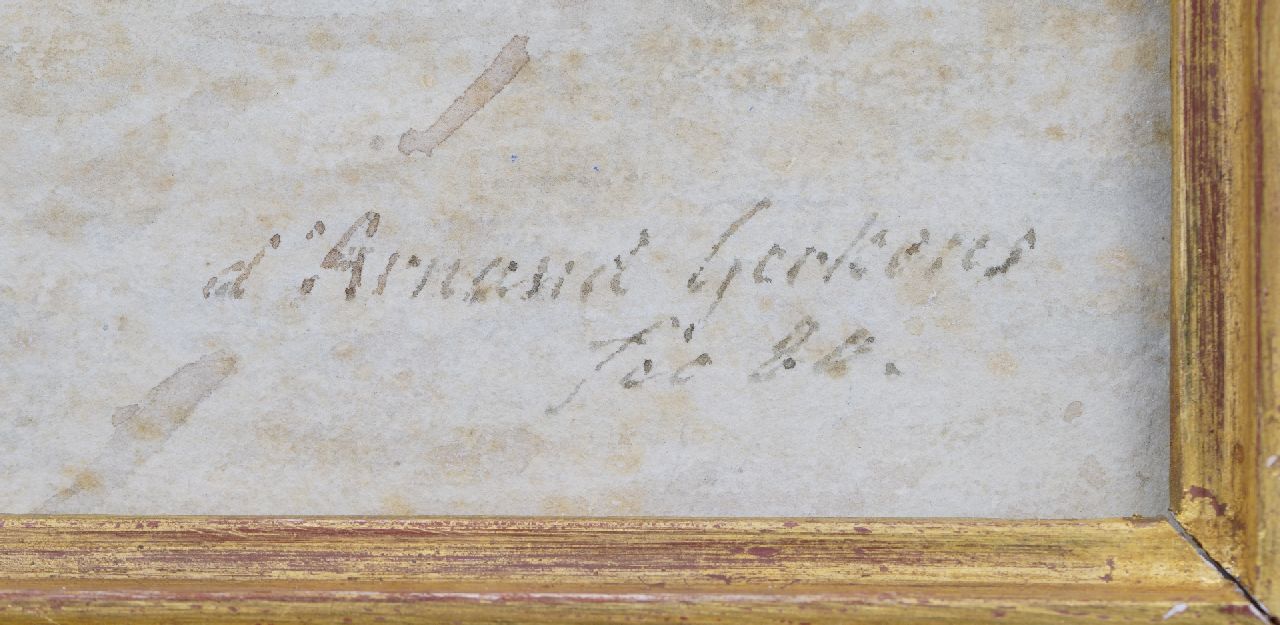 d'Arnaud Gerkens
fec 20.